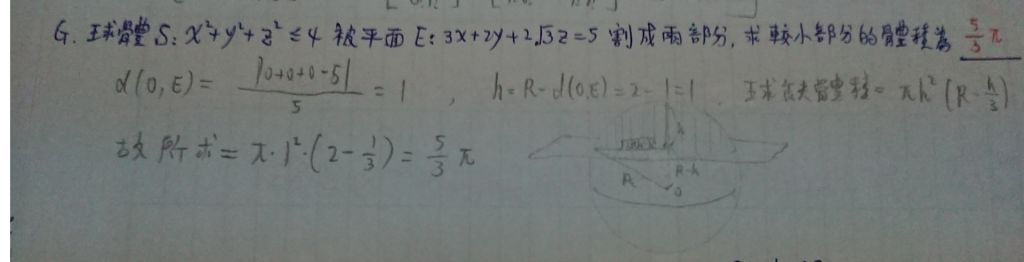 G. 球體 S: x²+y²+z² ≤ 4 被平面 E: 3x+2y+2√3z=5 割成兩部分, 求較小部分的體積為 5/3 π
d(0,E) = |0+0+0-5|/5 = 1 , h=R-d(0,E)=2-1=1. 球缺體積= πh²(R-h/3)
故所求= π·1²·(2-1/3)= 5/3 π
h
R R-h
0